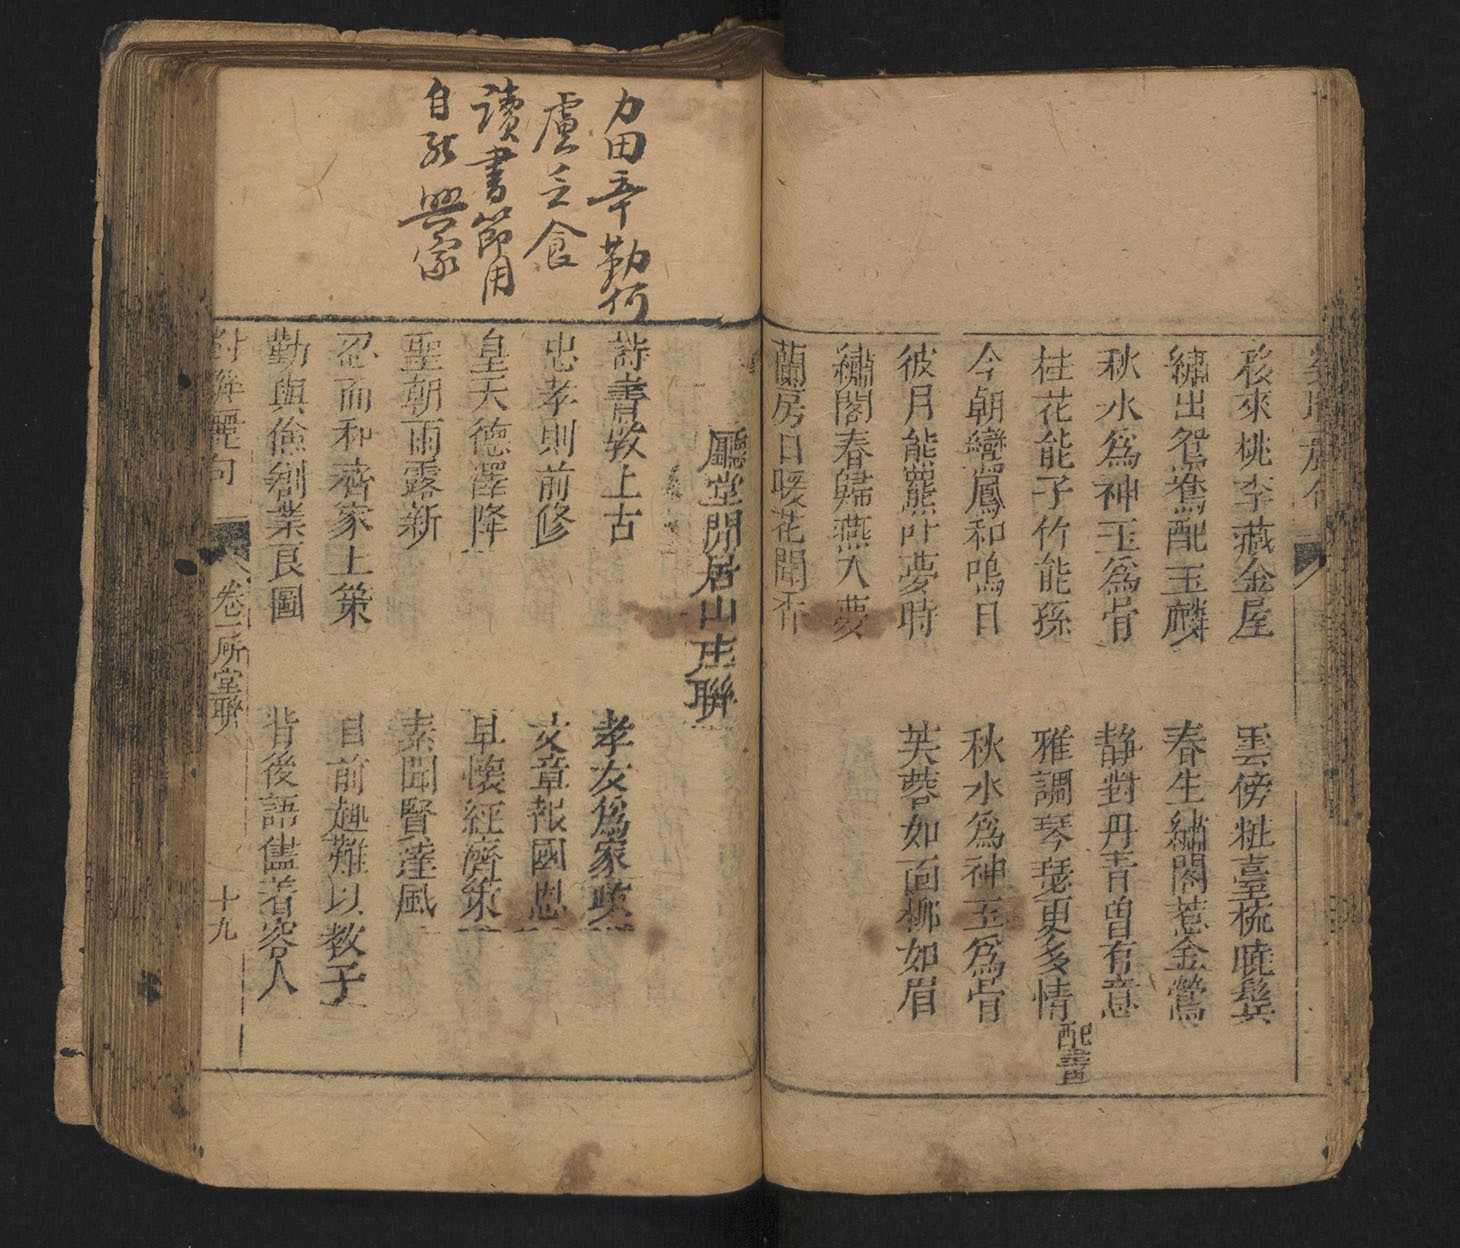 移來桃李藏金屋
雲傍粧臺梳曉鬓
繡出鴛鴦配玉麟
春生繡閣惹金鶯
秋水為神玉為骨
靜對丹青曾有意
桂花能子竹能孫
雅調琴瑟更多情
配書
今朝鸞鳳和鳴日
秋水為神玉為骨
彼月能羆叶夢時
芙蓉如面柳如眉
繡閣春歸燕入夢
蘭房日暖花聞香
廳堂閒居山庄聯
力田辛勤何
慮乏食
讀書節用
自能興家
詩書敦上古
孝友為家政
忠孝則前修
文章報國恩
皇天德澤降
早懷經濟策
聖朝雨露新
素聞賢達風
忍而和齊家上策
目前趣難以教子
勤與儉創業良圖
背後語儘着容人
對聯麗句
卷一 所堂聯
十九